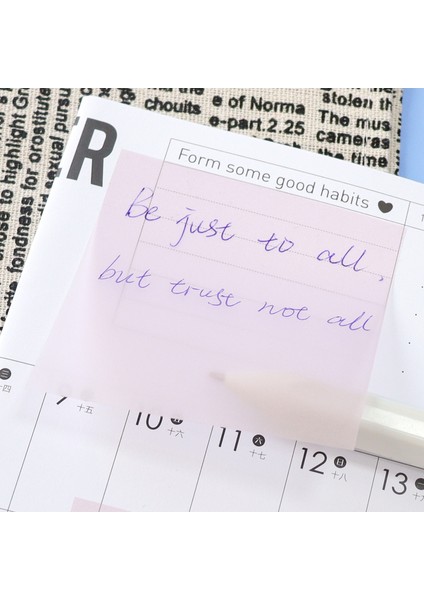 chouits
e of Norma
e-part.2.25
stolen th
The mus
cameras
the time
se to highlight Gr
fondness for orostitute
sexual pursu
ER
Form some good habits
Be just to all,
but trust not all
三
十四
9
十五
10
五
十六
11
六
十七
12
日
十八
13
一